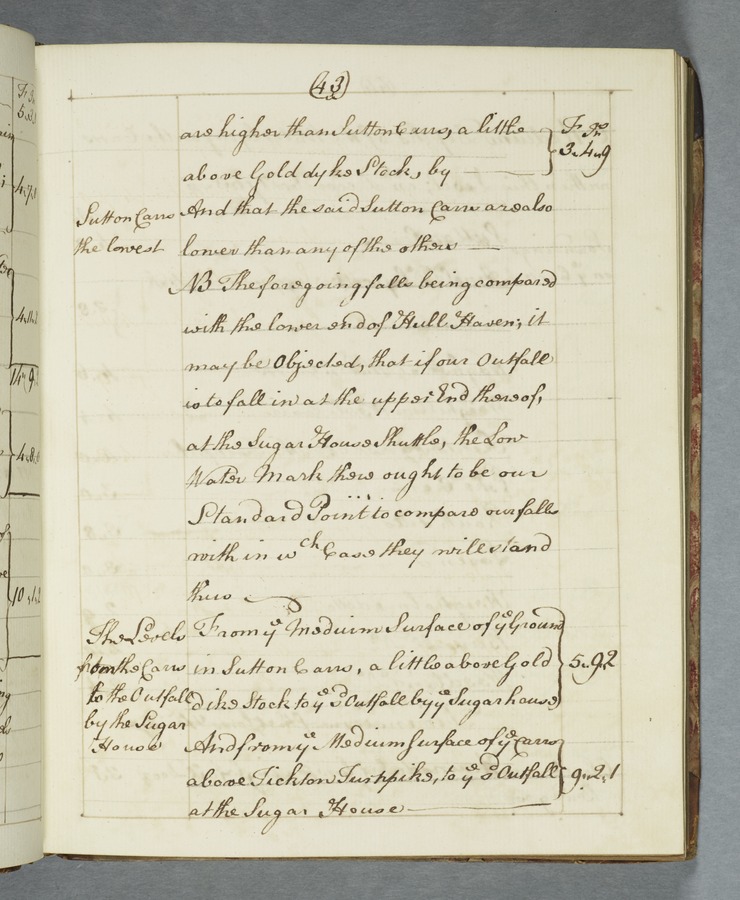 (43)
are higher than Sutton Carrs, a little
above Gold dyke Stock, by
Ft In
3.4.9
Sutton Carrs
the lowest
And that the said Sutton Carrs are also
lower than any of the others
NB The foregoing falls being compared
with the lower end of Hull Haven; it
may be Objected, that if our Outfall
is to fall in at the upper End thereof,
at the Sugar House Shuttle, the Low
Water Mark there ought to be our
Standard Point to compare our falls
with in wch Case they will stand
thus
The Levels
from the Carrs
to the Outfall
by the Sugar
House
From ye Medium Surface of ye Ground
in Sutton Carrs, a little above Gold
dike Stock to ye sd Outfall by ye Sugar house
5.9.2
And from ye Medium surface of ye Carrs
above Tickton Turnpike, to ye sd Outfall
at the Sugar House
9.2.1